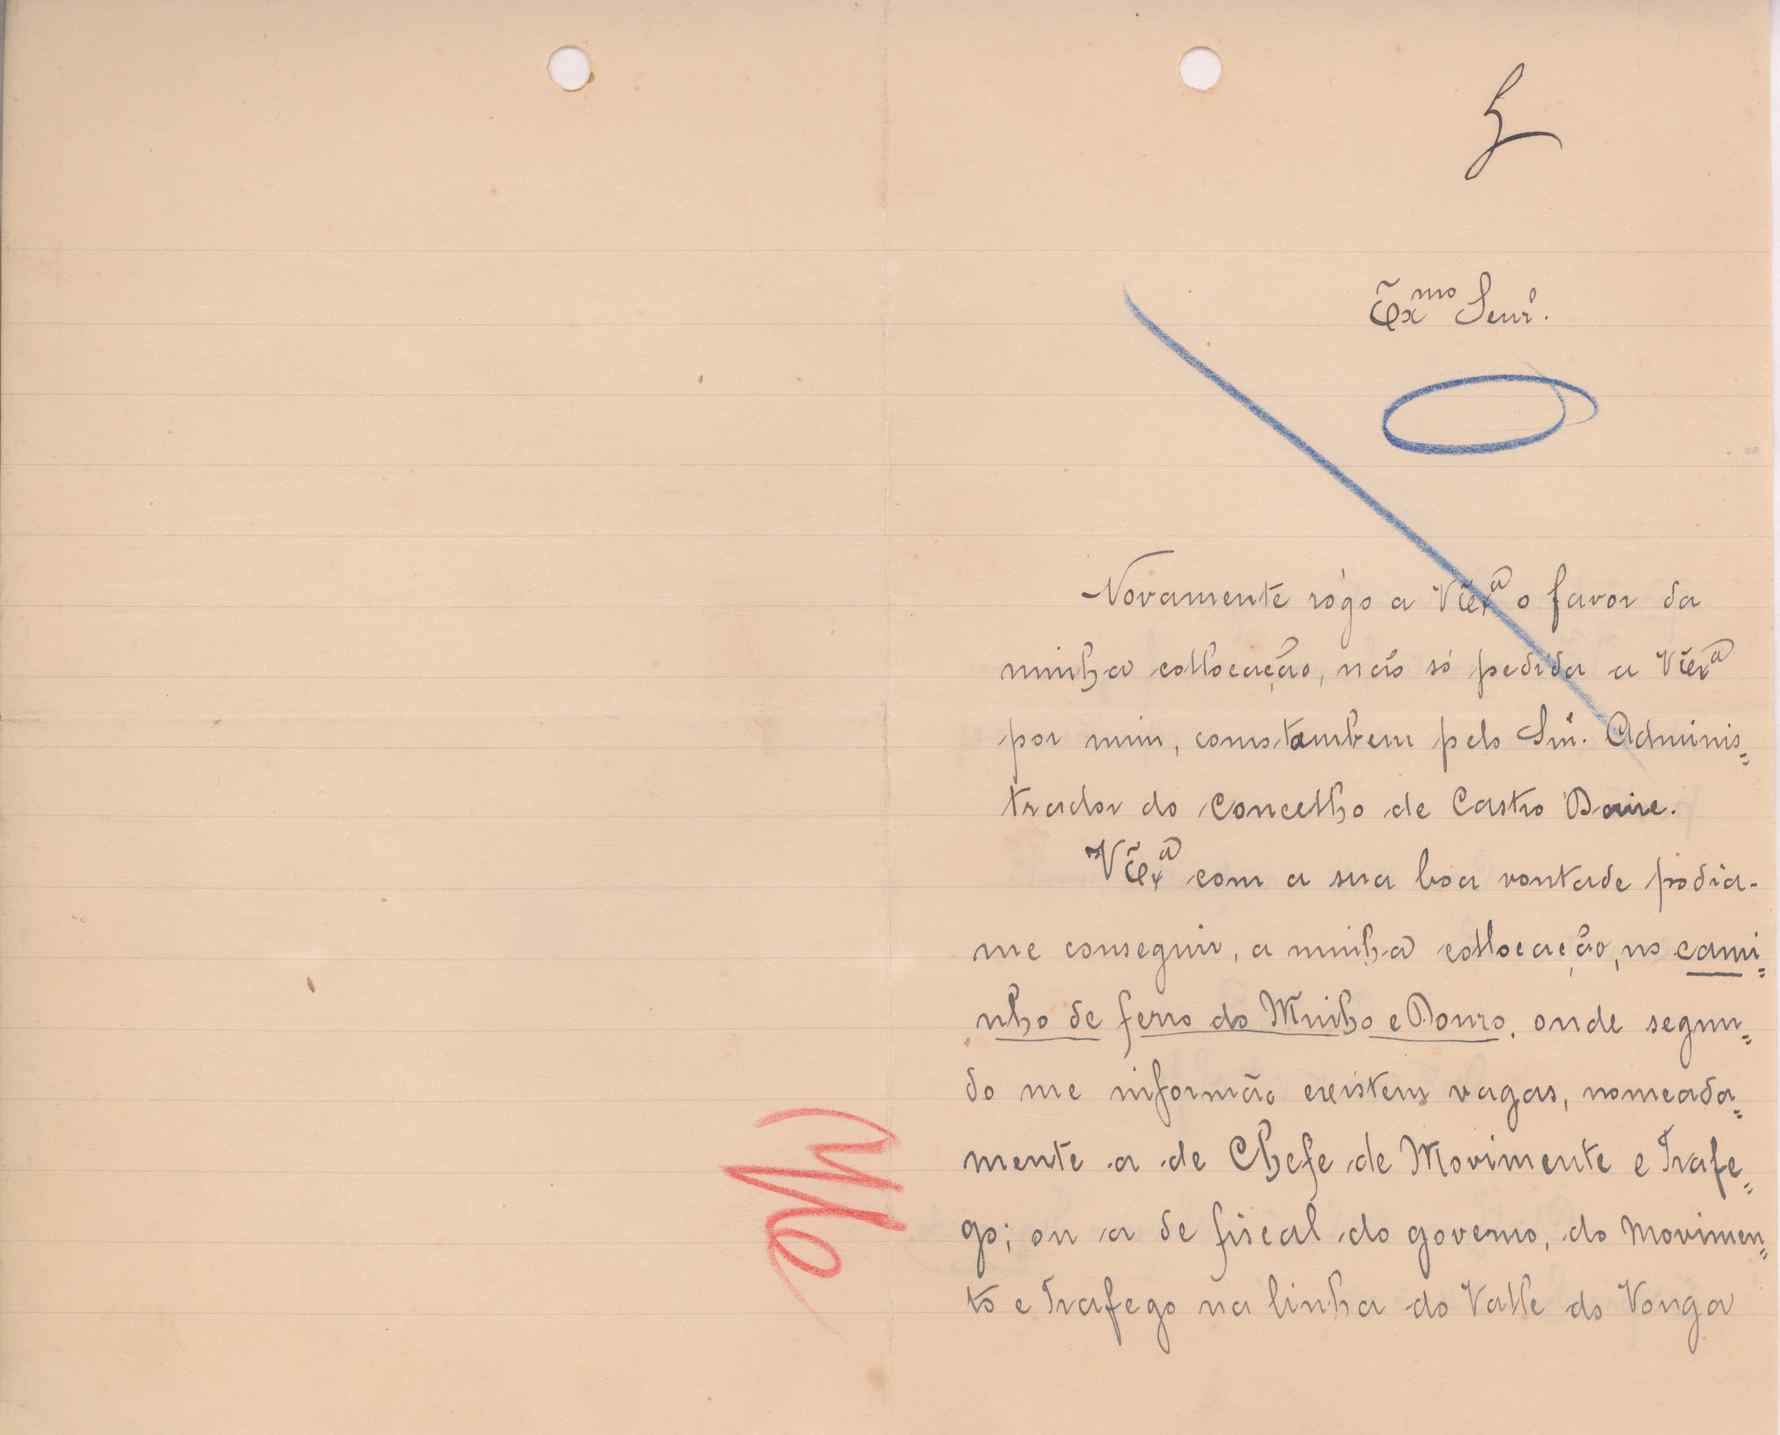 Exmo Senr.
Novamente rógo a V Exa o favor da
minha collocação, não só pedida a V Exa
por mim, como tambem pelo Snr. Adminis=
trador do Concelho de Castro Daire.
V Exa com a sua boa vontade podia-
me conseguir, a minha collocação, no cami=
nho de ferro do Minho e Douro, onde segun=
do me informão existem vagas, nomeada=
mente a de Chefe de Movimente e Trafe=
go; ou a de fiscal do governo, do Movimen=
to e Trafego na linha do Valle do Vouga